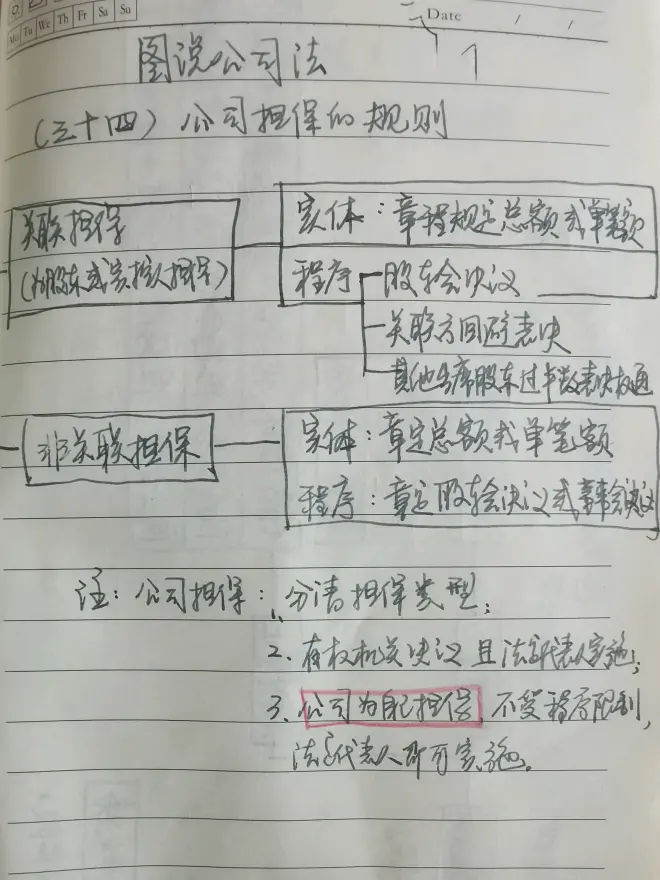 Mo Tu We Th Fr Sa Su
Date / /
图说公司法 1
(三十四)公司担保的规则
关联担保
(为股东或实控人担保)
实体：章程规定总额或单笔额
程序 股东会决议
关联方回避表决
其他出席股东过半数表决权通
非关联担保
实体：章定总额或单笔额
程序：章定股东会决议或董事会决议
注：公司担保：1、分清担保类型；
2、有权机关决议且法定代表人实施；
3、公司为自己担保，不受程序限制，
法定代表人即可实施。